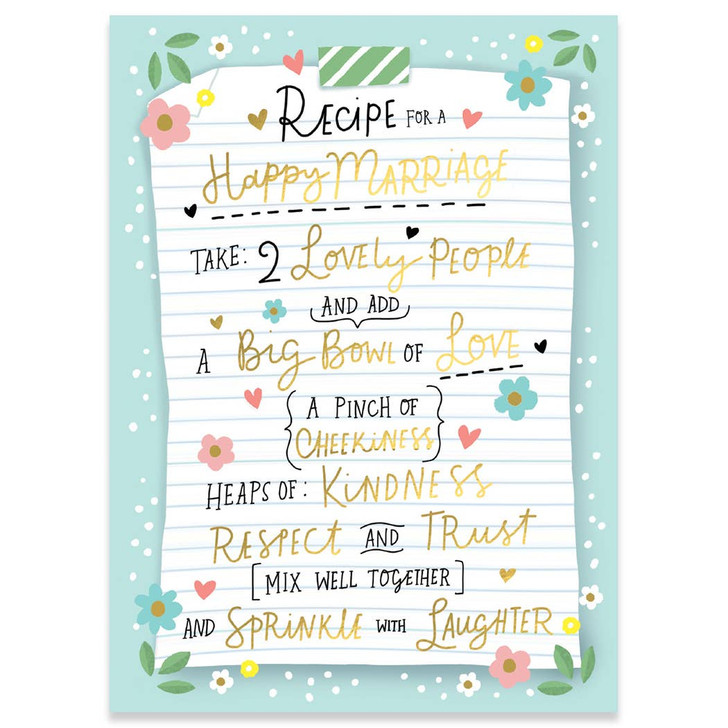 Recipe for a
Happy Marriage
Take: 2 Lovely People
and add
a Big Bowl of Love
a pinch of
Cheekiness
Heaps of: Kindness
Respect and Trust
[mix well together]
and Sprinkle with Laughter